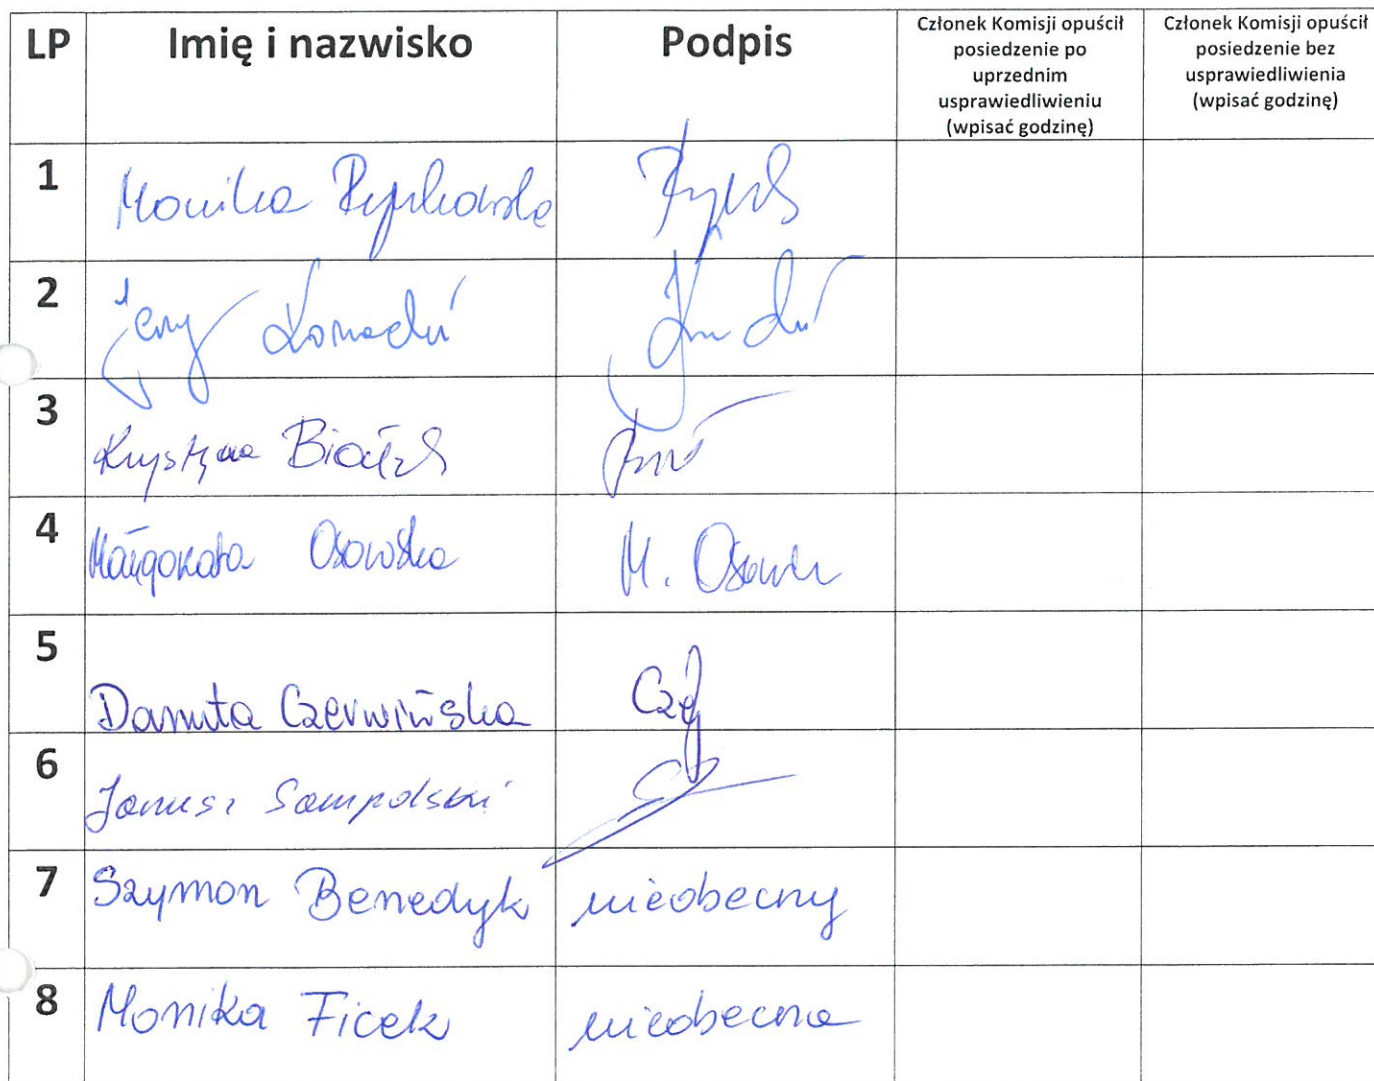 LP Imię i nazwisko Podpis Członek Komisji opuścił posiedzenie po uprzednim usprawiedliwieniu (wpisać godzinę) Członek Komisji opuścił posiedzenie bez usprawiedliwienia (wpisać godzinę)
1 Monika
2 Jerzy
3 Krystyna Białek
4 Małgorzata Osowska M.
5 Danuta Czerwińska
6 Janusz Sampolski
7 Szymon Benedyk nieobecny
8 Monika Ficek nieobecna